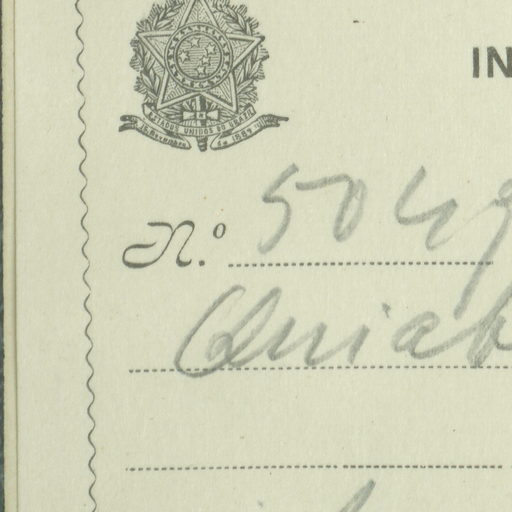 ESTADOS UNIDOS DO BRAZIL
15 Novembro de 1889
IN
N.º 504
Quiab